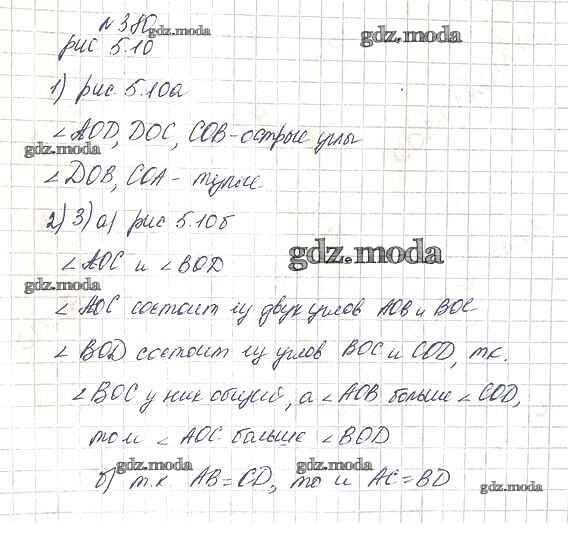 № 380 gdz.moda gdz.moda
рис 5.10
1) рис. 5.10а
∠AOD, DOC, COB - острые углы
gdz.moda
∠DOB, COA - тупые.
2) 3) а) рис 5.10б
gdz.moda
∠AOC и ∠BOD
gdz.moda
∠AOC состоит из двух углов AOB и BOC
∠BOD состоит из углов BOC и COD, т.к.
∠BOC у них общий, а ∠AOB больше ∠COD,
то и ∠AOC больше ∠BOD
gdz.moda gdz.moda
б) т.к. AB=CD, то и AC=BD
gdz.moda